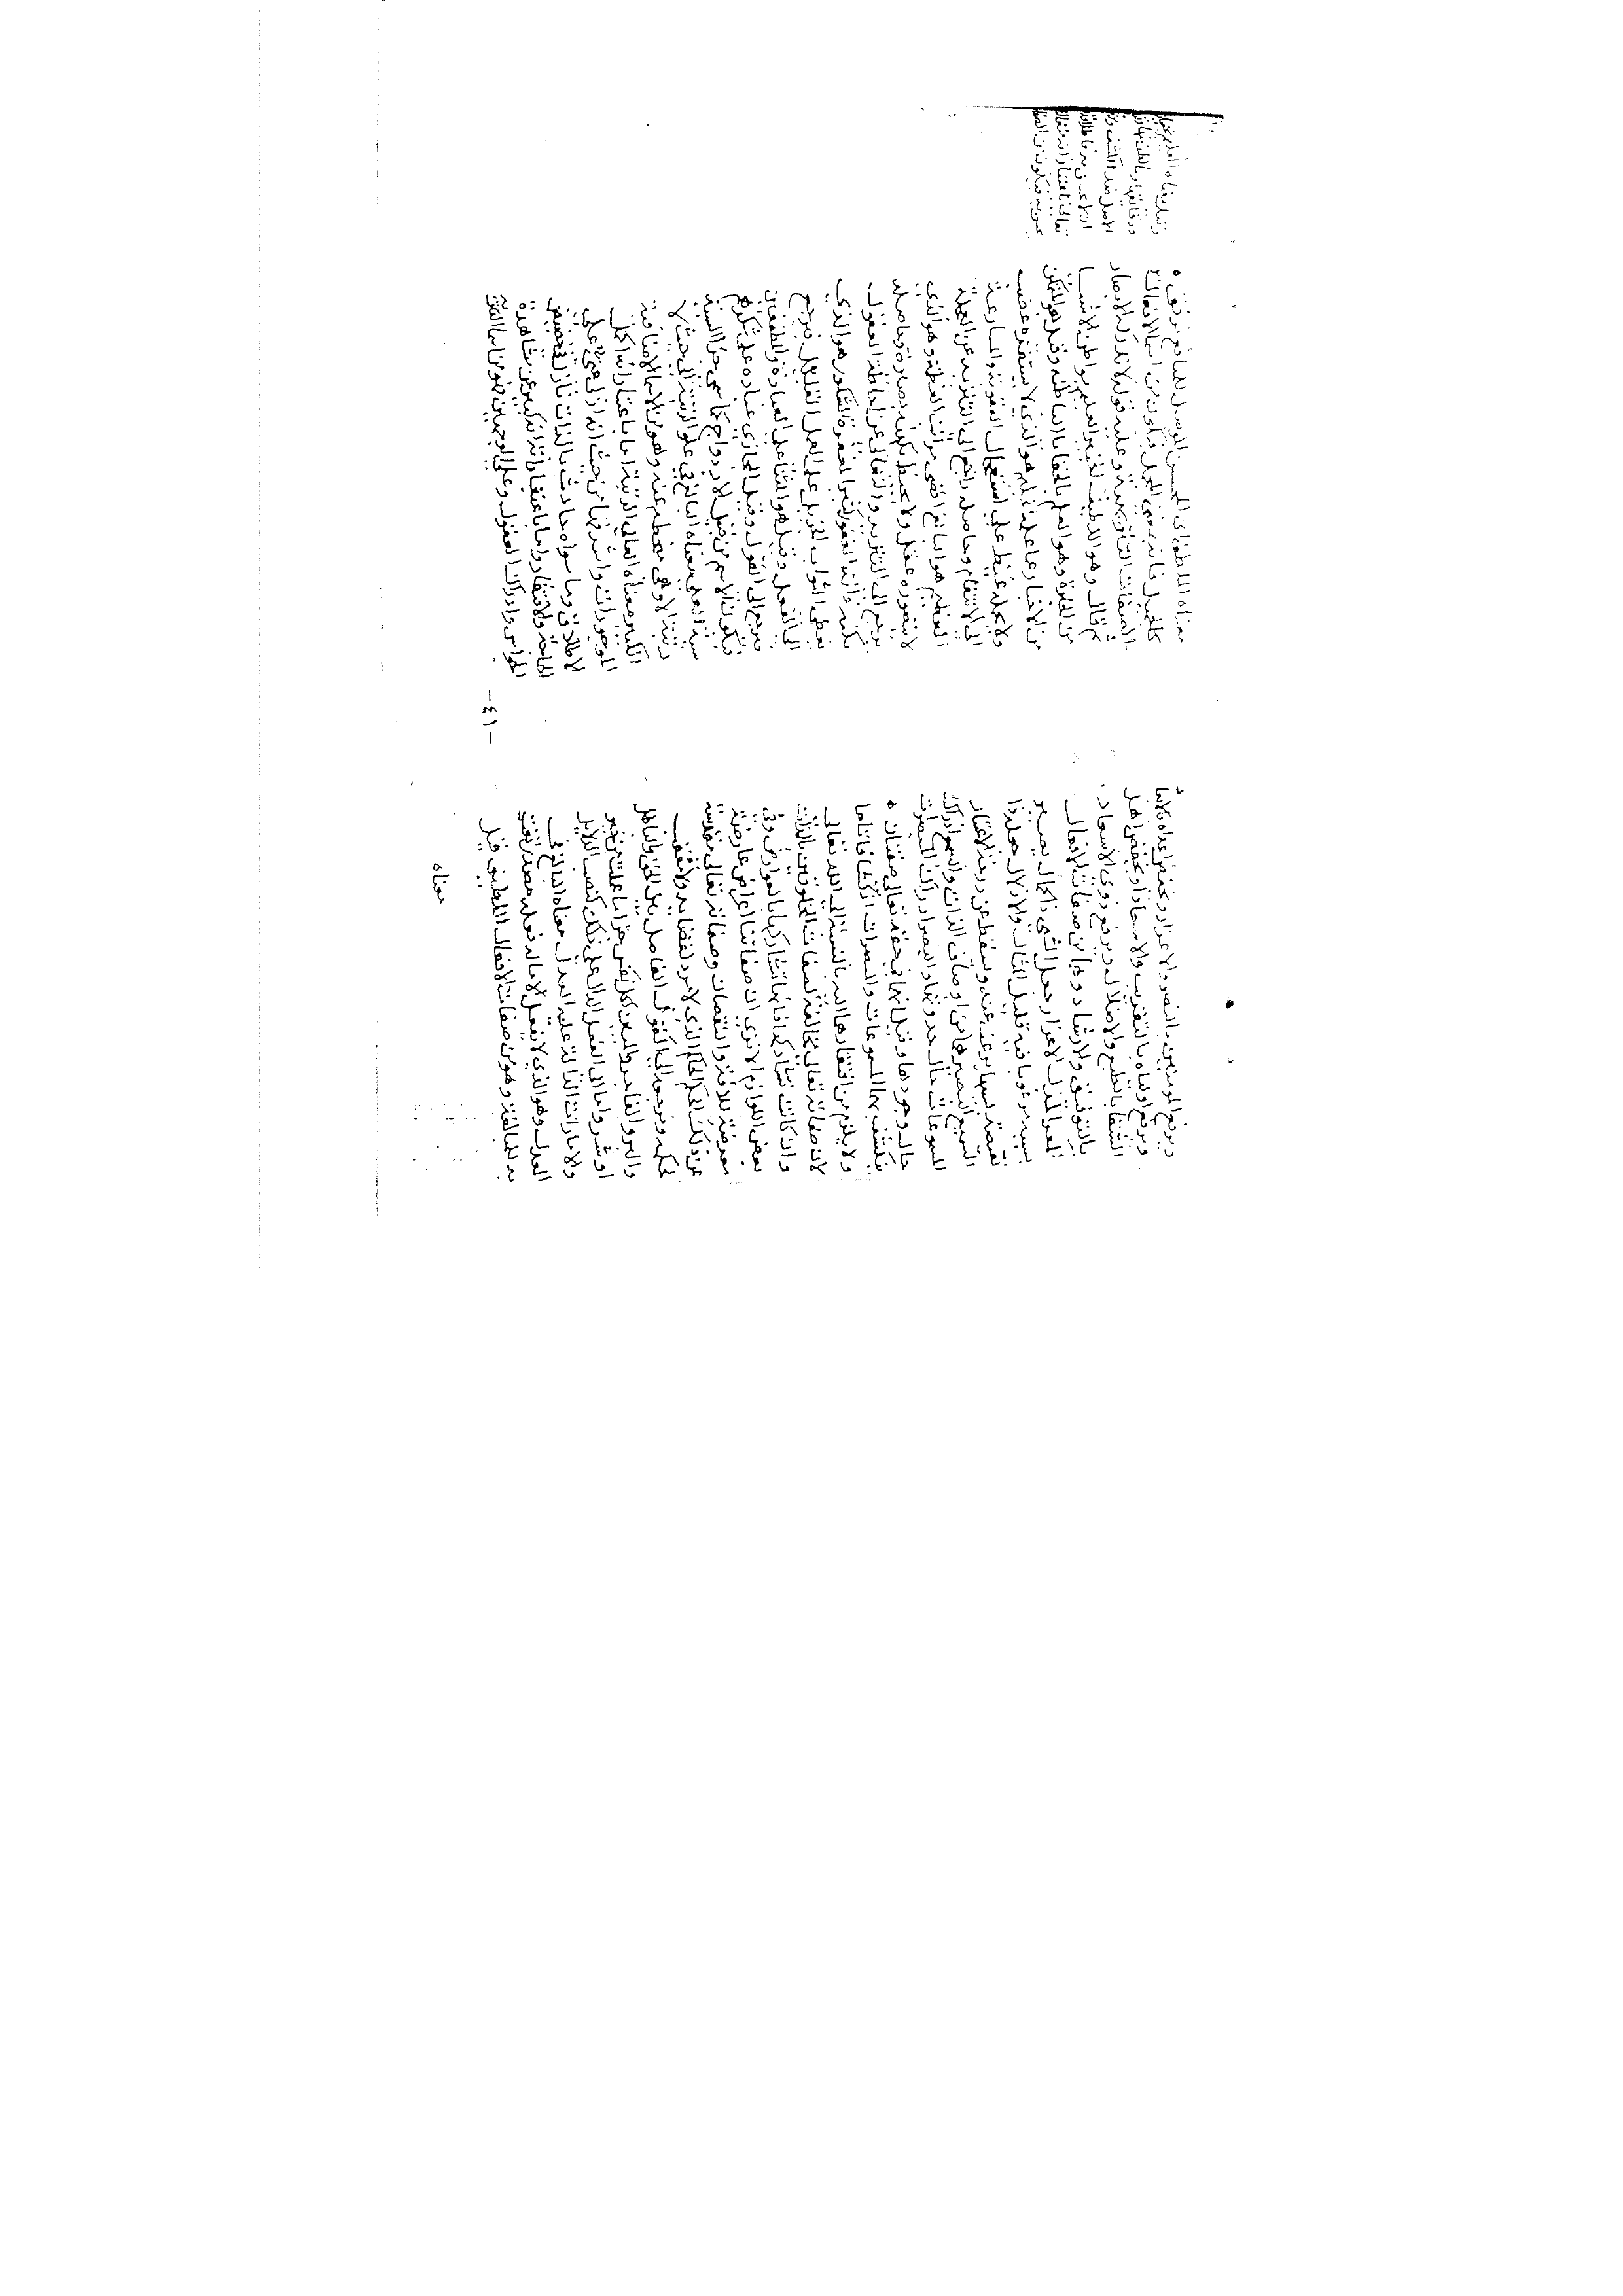 ويرفع المؤمنين بالنصر والاعزاز ويخفض اعداه
ويرفع اولياه بالتقريب والاسعاد ويخفض اهل
الشقا بالطبع والاضلال ويرفع ذوي الاسعاد
بالتوفيق والارشاد وهما من صفات الافعال
المعز المذل الاعزاز جعل الشي ذا كمال يصير
بسببه مرغوبا فيه قليل المثال والاذلال جعله ذا
نقيصة بسببها يرغب عنه ويسقط عن درجة الاعتبار
السميع البصير هما من اوصاف الذات والسمع ادراك
المسموعات حال حدوثها والبصر ادراك المبصرات
حال وجودها وقيل انهما في حقه تعالى صفتان
ينكشف بهما المسموعات والمبصرات انكشافا تاما
ولا يلزم من افتقارها الة بالنسبة الى الله تعالى
لان صفاته تعالى مخالفة لصفات المخلوقين بالذات
وان كانت تشاركها فانما تشاركها بالعوارض وفي
بعض اللوازم الا ترى ان صفاتنا اعراض عارضة
معرضة للافة والنقصان وصفاته تعالى مقدسة
عن ذلك الحكم الحاكم الذي لا مرد لقضايه ولا معقب
لحكمه ومرجعه الى القول الفاصل بين الحق والباطل
والبر والفاجر والمبين لكل نفس جزا ما عملت من خير
او شر واما الى الفعل الدال على ذلك كنصب الدلايل
والامارات الدالة عليه العدل معناه البالغ في
العدل وهو الذي لا يفعل الا ماله فعله مصدر نعت
به للمبالغة وهو من صفات الافعال اللطيف قيل
معناه
معناه اللطف اي المحسن الموصل للمنافع برفق
كالجميل فانه بمعنى المجمل فيكون من اسما الافعال
وعليه قوله لا تدركه الابصار
ثم قال وهو اللطيف الخبير العليم ببواطن الاشيا
من الخبرة وهو العلم بالخفايا الباطنة وقيل هو المتمكن
من الاخبار عما علمه الحليم هو الذي لا يستفزه غضب
ولا يحمله غيظ على استعجال العقوبة والمسارعة
الى الانتقام وحاصله راجع الى التنزيه عن العجلة
العظيم هو البالغ اقصى مراتب العظمة وهو الذي
لا يتصوره عقل ولا يحيط بكنهه بصيرة وحاصله
يرجع الى التنزيه والتعالى عن احاطة العقول
بكنه ذاته الغفور كثير المغفرة الشكور هو الذي
يعطي الثواب الجزيل على العمل القليل فيرجع
الى الفعل وقيل هو المثني على العباده المطيعين
فيرجع الى القول وقيل المجازي عباده على شكرهم
فيكون الاسم من قبيل الازدواج كما سمي جزا السيئة
سيئة العلي معناه البالغ في علو الرتبة الى حيث لا
رتبة الا وهي منحطة عنه وهو من الاسما الاضافية
الكبير معناه العالي الرتبة اما باعتبار انه اكمل
الموجودات واشرفها من حيث انه ازلي غني على
الاطلاق وما سواه حادث بالذات نازل في حضيض
الحاجة والافتقار واما باعتبار انه كبير عن مشاهدة
الحواس وادراك العقول وعلى الوجهين فهو من اسما التنزيه
-٤١-